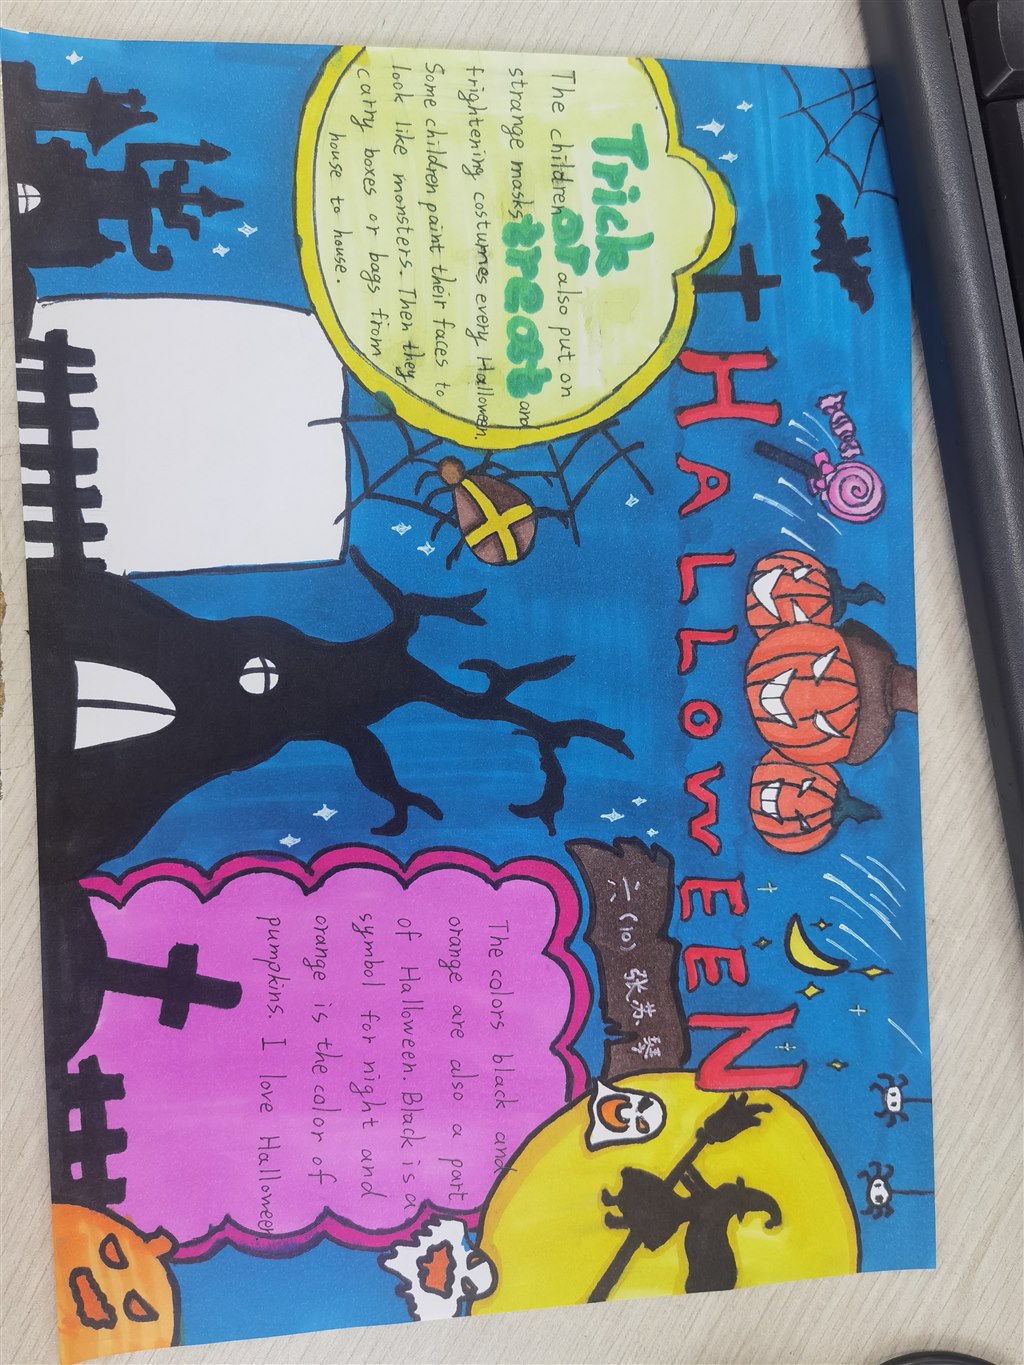 HALLOWEEN
Trick
or
treat
The children also put on
strange masks and
frightening costumes every Halloween.
Some children paint their faces to
look like monsters. Then they
carry boxes or bags from
house to house.
六(10) 张苏琴
The colors black and
orange are also a part
of Halloween. Black is a
symbol for night and
orange is the color of
pumpkins. I love Halloween.